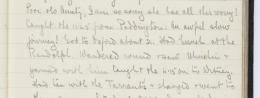 Poor old Aunty, I am so sorry she has all this worry!
Caught the 11.45 from Paddington. An awful slow
journey! Got to Oxford about 2. Had lunch at the
Randolph. Wandered round and
with him. Caught the 4.45 on to Witney.
with the Tarrants & changed & went to